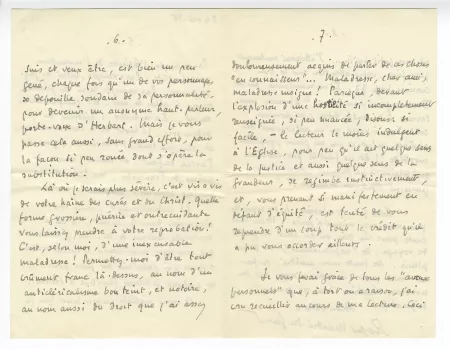 . 6 .
suis et veux être, est bien un peu
gêné, chaque fois qu'un de vos personnages
se dépouille soudain de sa personnalité
pour devenir un anonyme haut-parleur,
porte-voix d'Herbert. Mais je vous
passe cela aussi, sans grand effort, pour
la façon si peu rouée dont s'opère la
substitution.
Là où je serais plus sévère, c'est vis à vis
de votre haine des curés et du Christ. Quelle
forme grossière, puérile et outrecuidante
vous laissez prendre à votre réprobation !
C'est, selon moi, d'une inexcusable
maladresse ! Permettez-moi d'être tout
crûment franc là-dessus, au nom d'un
anticléricalisme bon teint, et notoire,
au nom aussi du droit que j'ai assez
. 7 .
douloureusement acquis de parler de ces choses
"en connaisseur"... Maladresse, cher ami,
maladresse insigne ! Parce que, devant
l'explosion d'une hostilité si incomplètement
renseignée, si peu nuancée, disons si
facile, – le lecteur le moins indulgent
à l'Église, pour peu qu'il ait quelque sens
de la justice et aussi quelque sens de la
grandeur, se regimbe instinctivement,
et, vous prenant si manifestement en
défaut d'équité, est tenté de vous
reprendre d'un coup tout le crédit qu'il
a pu vous accorder ailleurs.
Je vous ferai grâce de tous les "aveux
personnels" que, à tort ou à raison, j'ai
cru recueillir au cours de ma lecture. Ceci